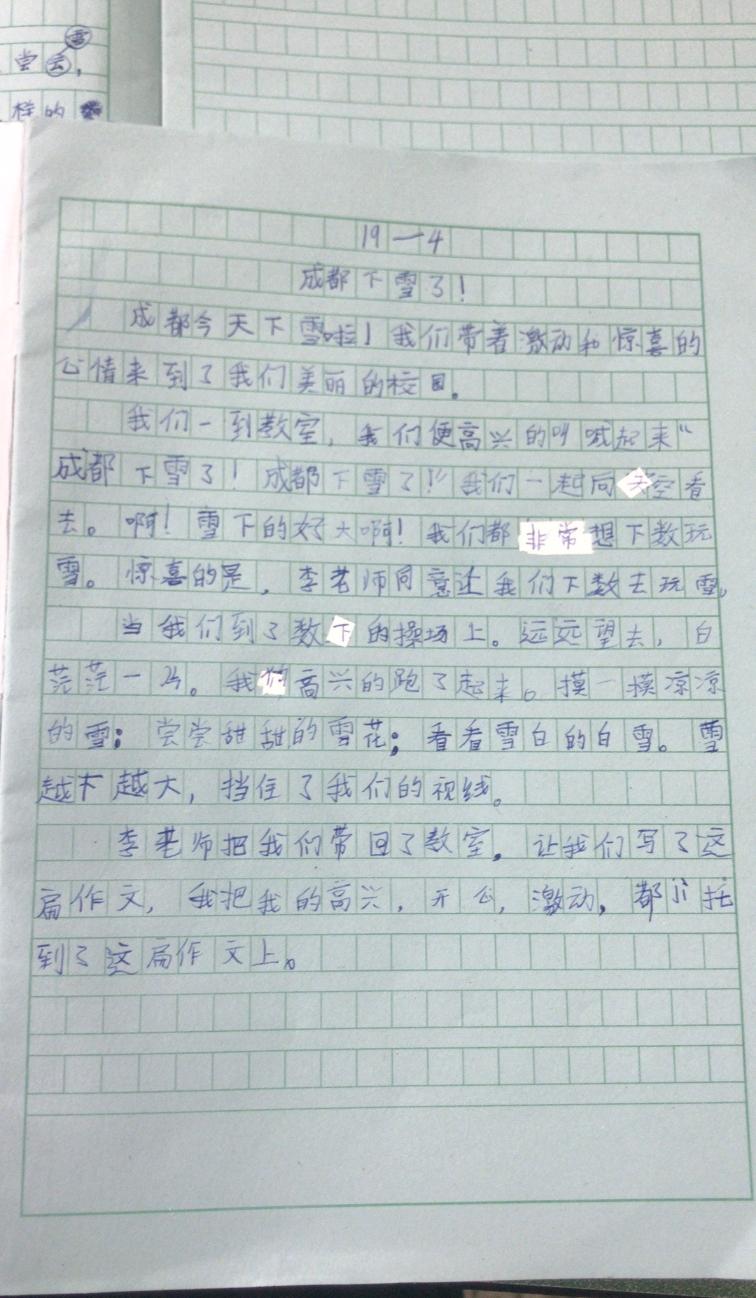 尝去,
雪
样的
19一4
成都下雪了!
成都今天下雪啦!我们带着激动和惊喜的
心情来到了我们美丽的校园。
我们一到教室,我们便高兴的叫喊起来“
成都下雪了!成都下雪了!”我们一起向天空看
去。啊!雪下的好大啊!我们都非常想下数玩
雪。惊喜的是,李老师同意让我们下数去玩雪。
当我们到了数下的操场上。远远望去,白
茫茫一片。我们高兴的跑了起来。摸一摸凉凉
的雪;尝尝甜甜的雪花;看看雪白的白雪。雪
越下越大,挡住了我们的视线。
李老师把我们带回了教室,让我们写了这
扁作文,我把我的高兴,开心,激动,都托
到了这扁作文上。